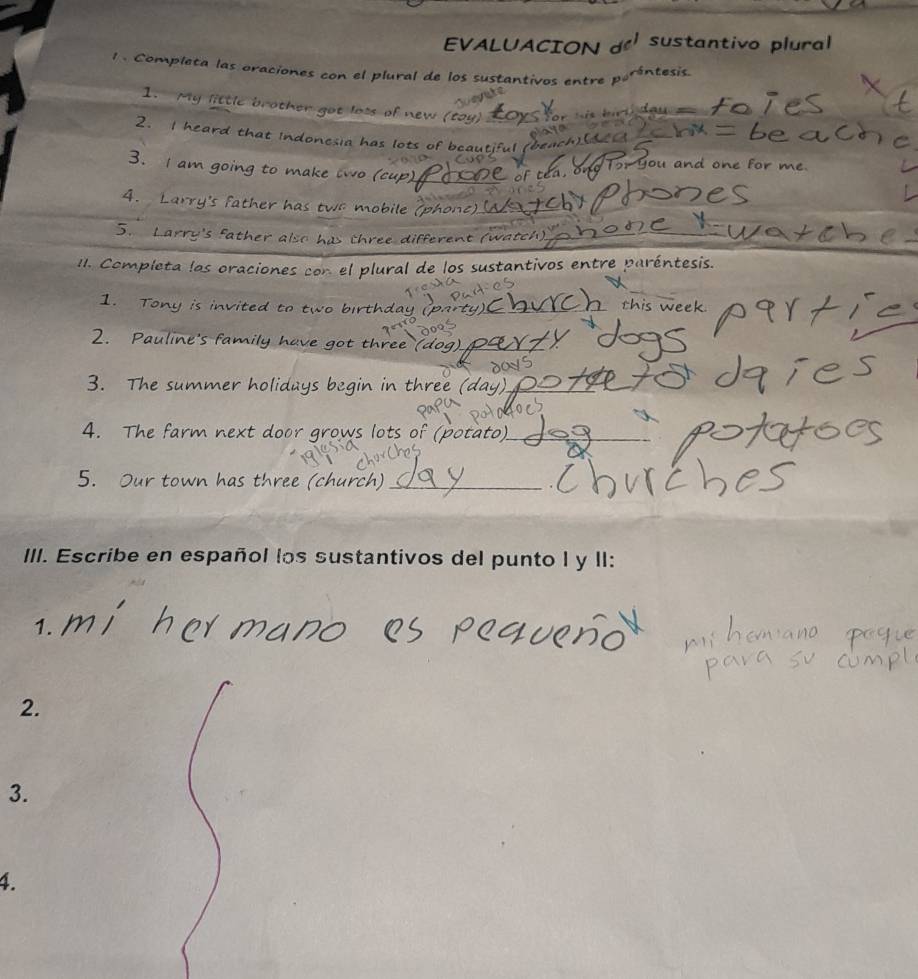 EVALUACION del sustantivo plural
1. Completa las oraciones con el plural de los sustantivos entre paréntesis.
1. My little brother got lots of new (toy) toys for his birthday = toies
2. I heard that Indonesia has lots of beautiful (beach) = beache
3. I am going to make two (cup) phone of tea, one for you and one for me.
cups
4. Larry's father has two mobile (phone) watch phones
5. Larry's father also has three different (watch) phone = watche
II. Completa las oraciones con el plural de los sustantivos entre paréntesis.
parties
1. Tony is invited to two birthday (party) church this week. partie
perro dogs
2. Pauline's family have got three (dog) party dogs
days
3. The summer holidays begin in three (day) daies
papa potatoes
4. The farm next door grows lots of (potato) dog potatoes
iglesia churches
5. Our town has three (church) day. churches
III. Escribe en español los sustantivos del punto I y II:
1. mi hermano es pequeño
mi hermano peque
para su cumple
2.
3.
4.